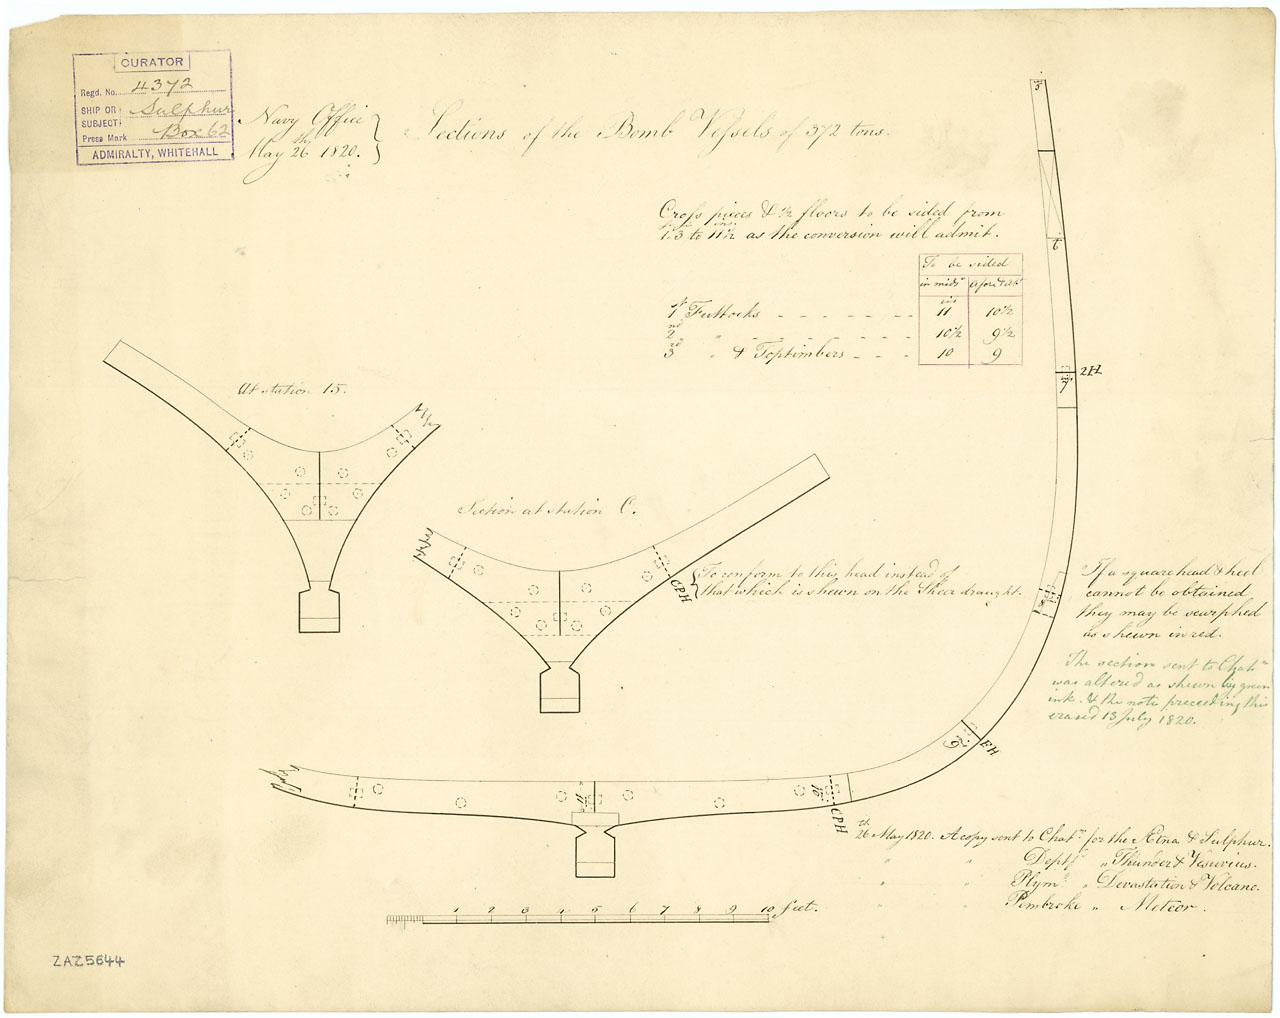 CURATOR
Regd. No. 4372
SHIP OR SUBJECT: Sulphur
Press Mark Box 62
ADMIRALTY, WHITEHALL
Navy Office
May 26th 1820.
Sections of the Bomb Vessels of 372 tons.
Cross pieces & ½ floors to be sided from
1.3 to 11½ as the conversion will admit.
To be sided
in mids afore & abt
ins
1st Futtocks 11 10½
2nd " 10½ 9½
3rd " & Toptimbers 10 9
At station 15.
Section at station C.
To conform to this head instead of
that which is shewn on the Sheer draught.
CPH
5
6
2H
7
If a square head & heel
cannot be obtained
they may be scarphed
as shewn in red.
The section sent to Chatm
was altered as shewn by green
ink. & the note preceeding this
erased 13 July 1820.
FH
9
11
10
CPH
26th May 1820. A copy sent to Chatm for the Ætna & Sulphur.
" " Deptd " Thunder & Vesuvius.
" " Plymo " Devastation & Volcano.
" " Pembroke " Meteor.
1 2 3 4 5 6 7 8 9 10 feet.
ZAZ5644